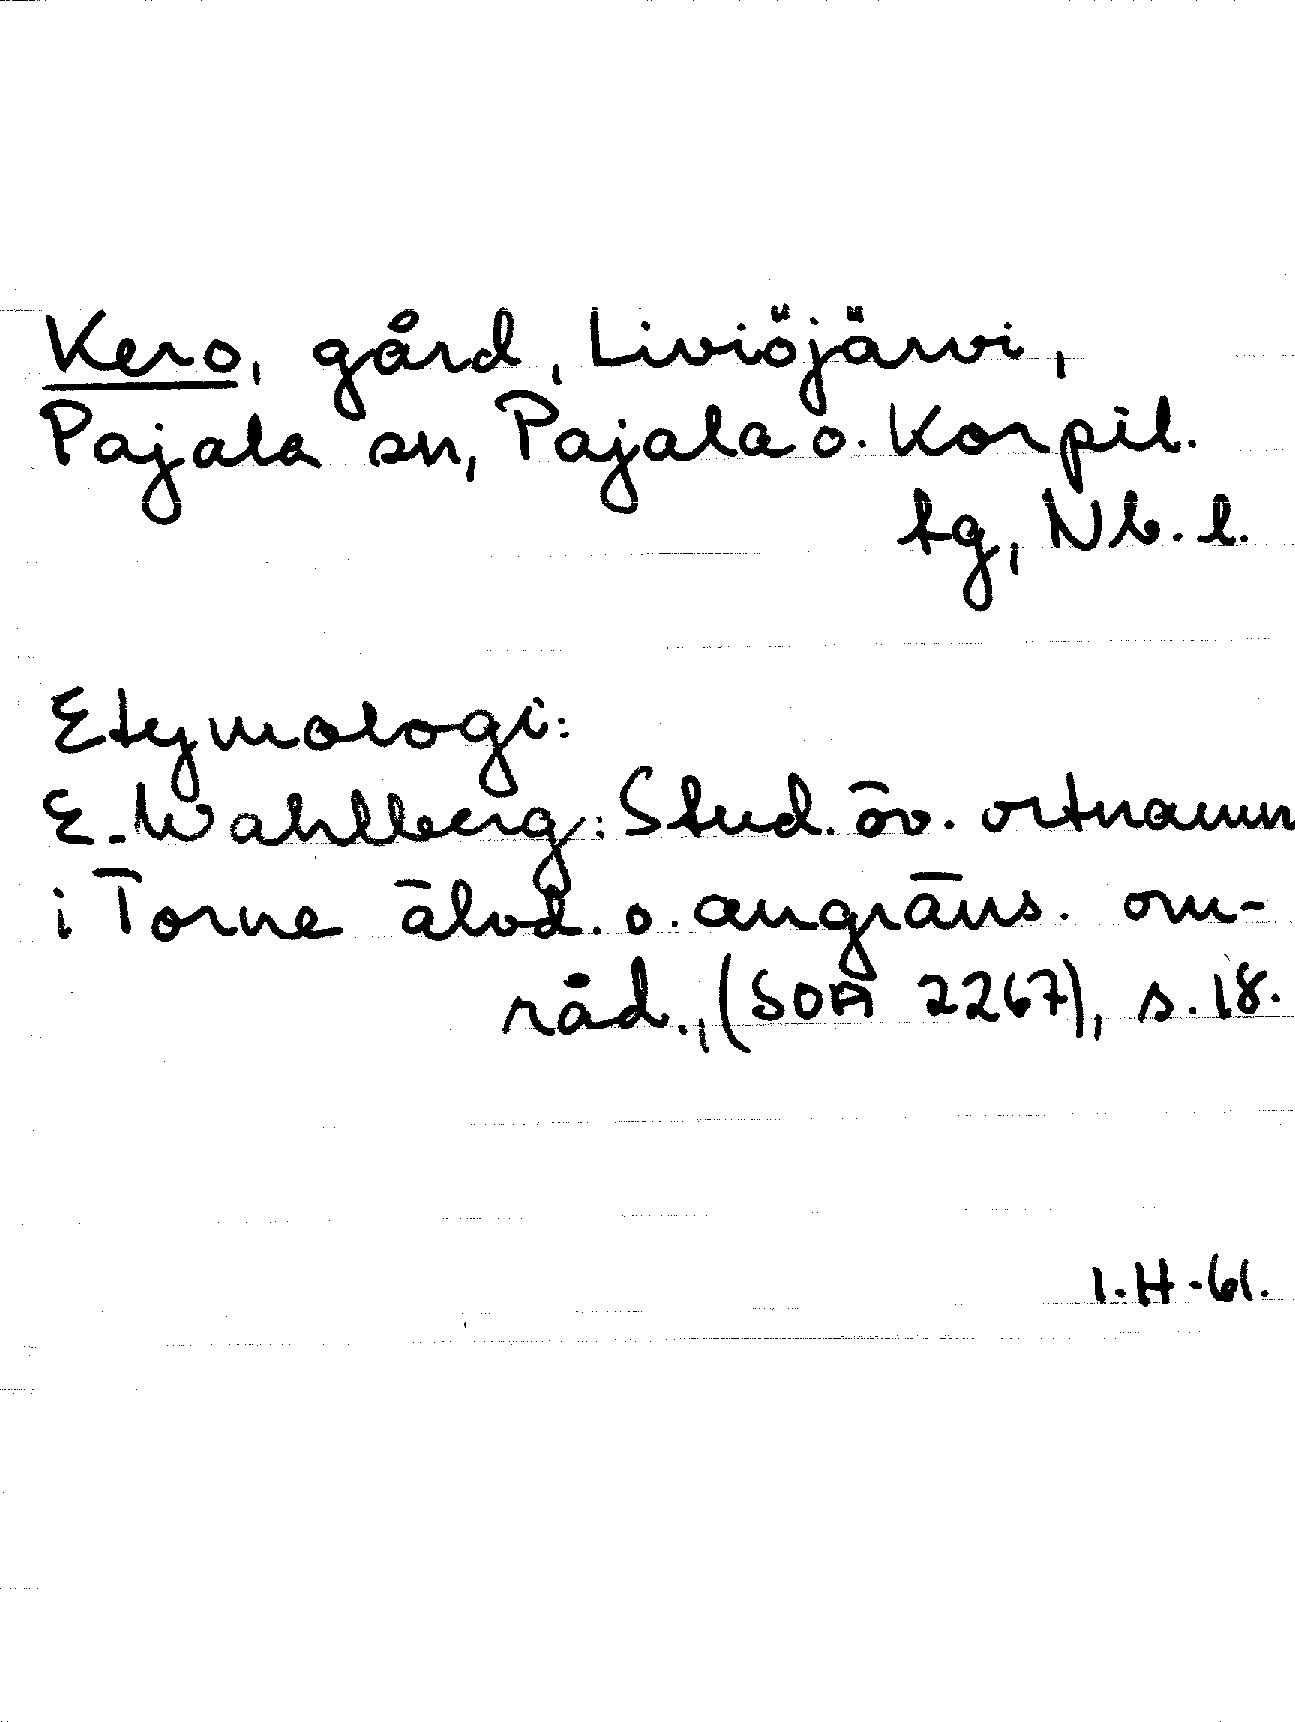 Kero, gård, Liviöjärvi,
Pajala sn, Pajala o. Korpil.
tg, Nb. l.
Etymologi:
E. Wahlberg: Stud. öv. ortnamn
i Torne älvd. o. angräns. om-
råd., (SOA 2267), s. 18.
I.H-61.